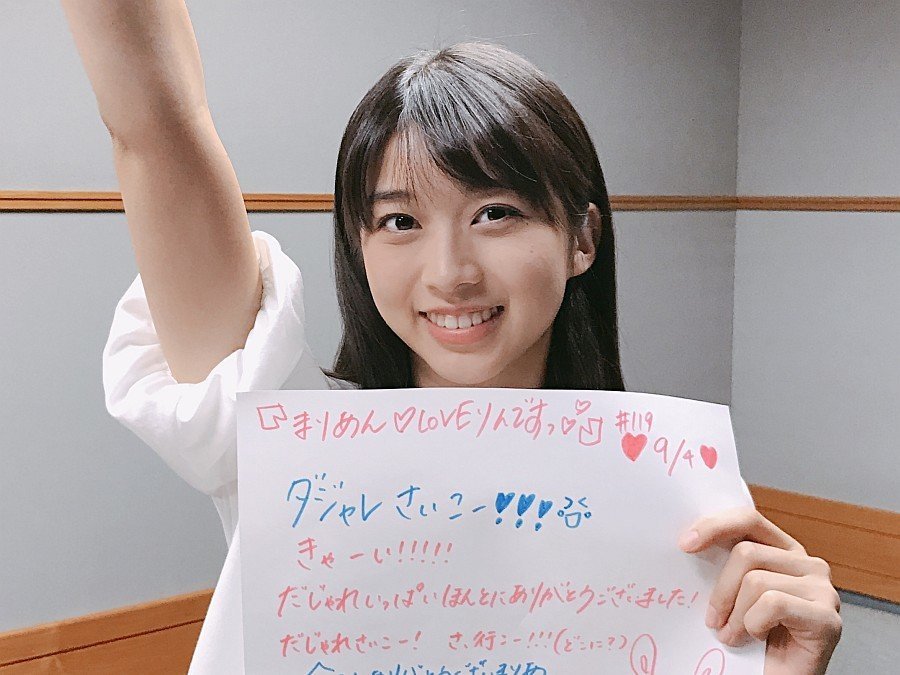 『まりめん♡LOVEりんですっ♡』 #119
♥9/4♥
ダジャレさいこー♥♥♥!
きゃーい!!!!!
だじゃれいっぱいほんとにありがとうございました!
だじゃれさいこー! さ、行こー!!!(どこに?)
ありがとうございまりめ